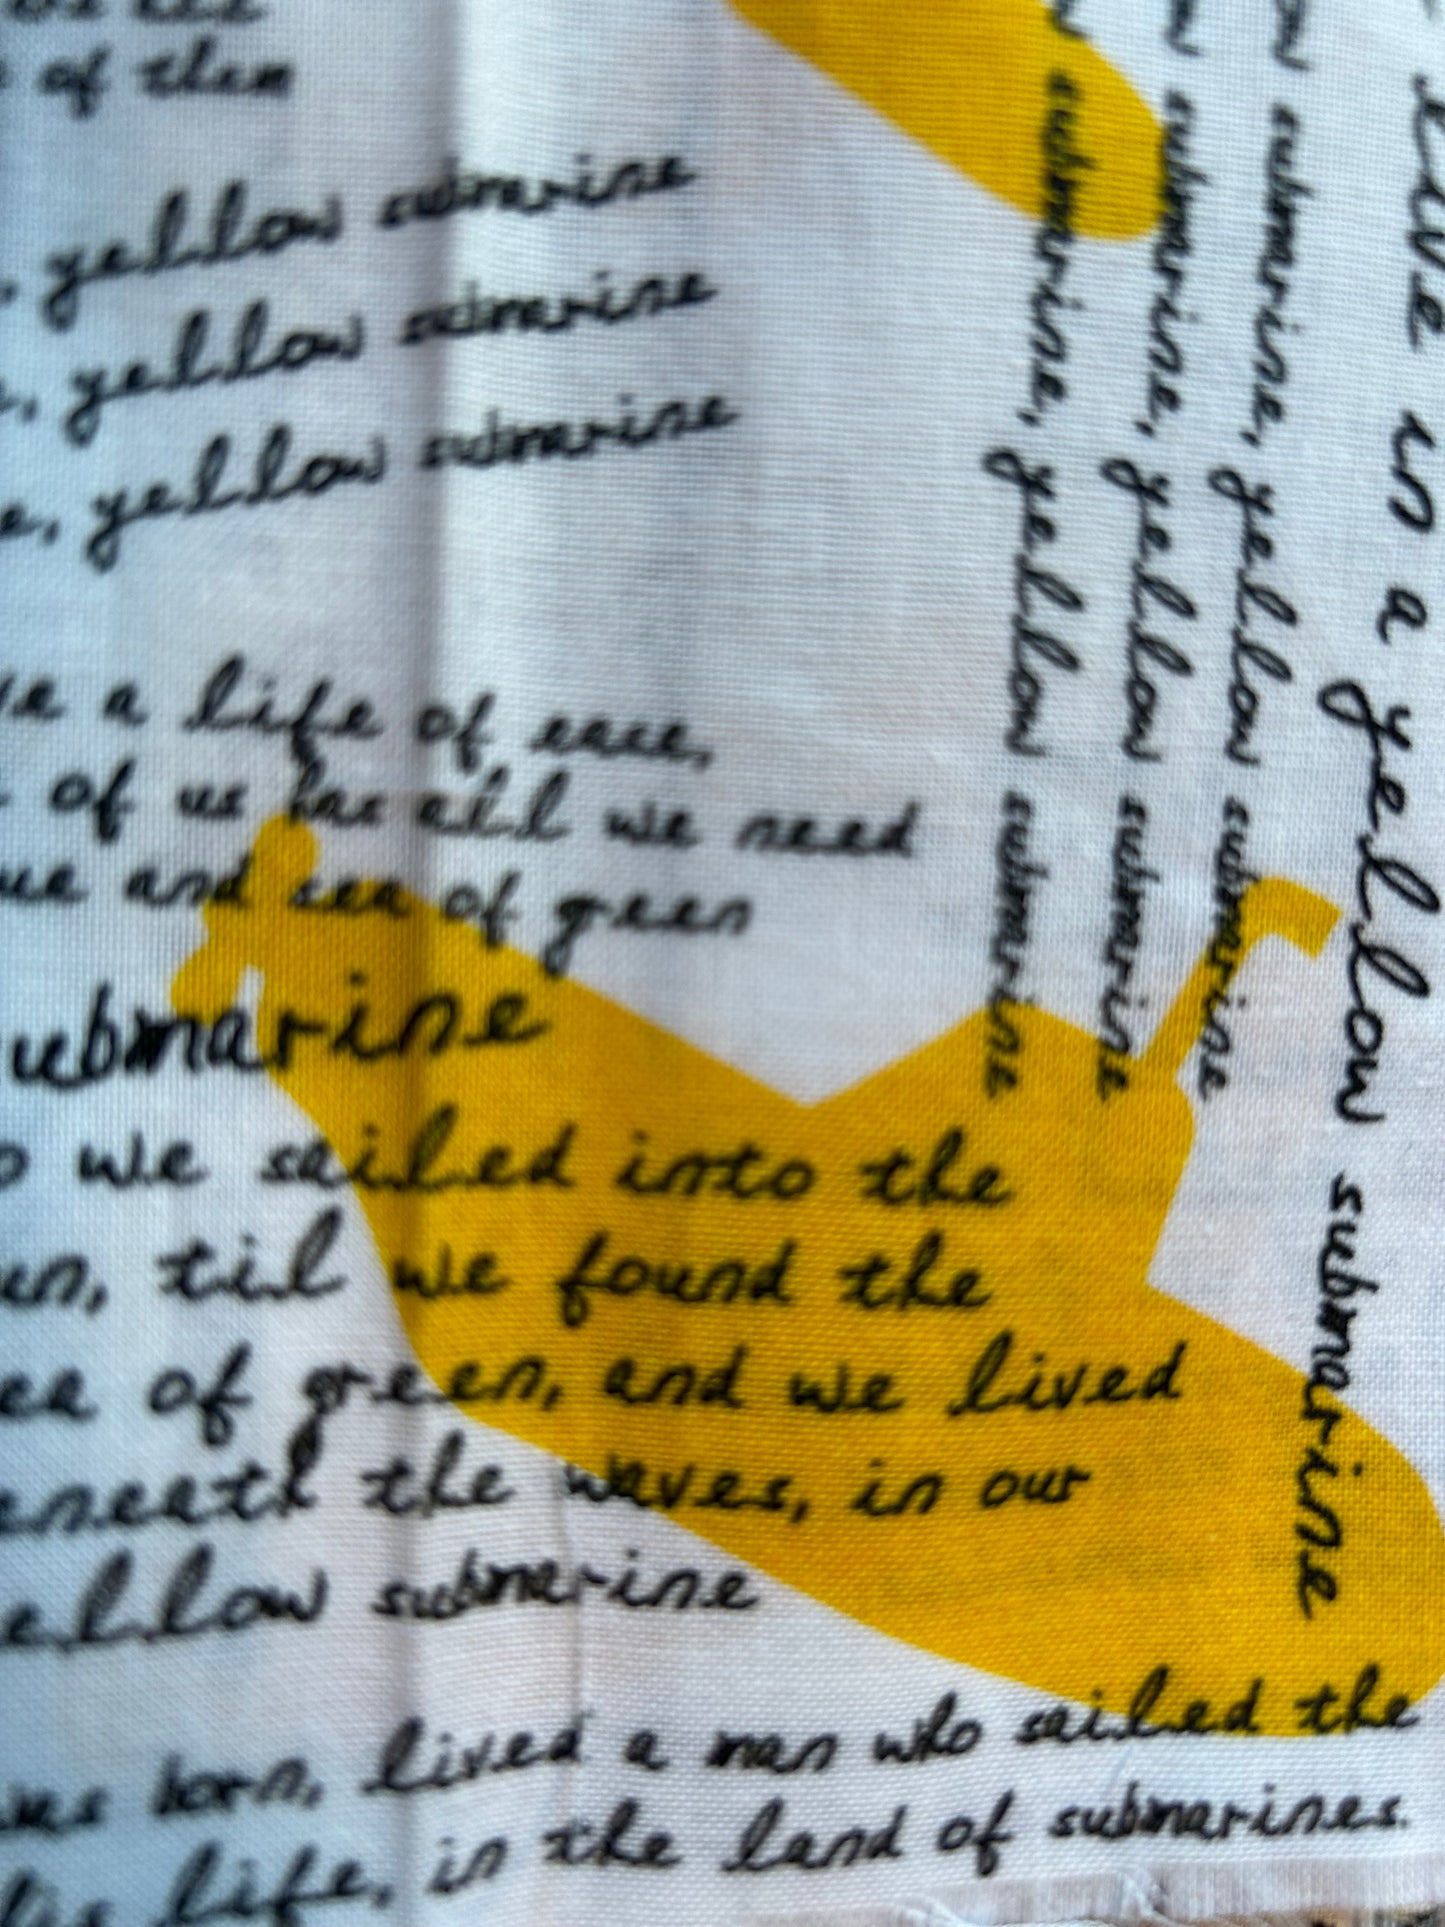 of them
, yellow submarine
e, yellow submarine
e, yellow submarine
a life of ease,
of us has all we need
ue and sea of green
submarine
o we sailed into the
un, til we found the
ea of green, and we lived
eneath the waves, in our
ellow submarine
was born, lived a man who sailed the
life, in the land of submarines.
submarine, yellow submarine
submarine, yellow submarine
submarine, yellow submarine
live in a yellow submarine